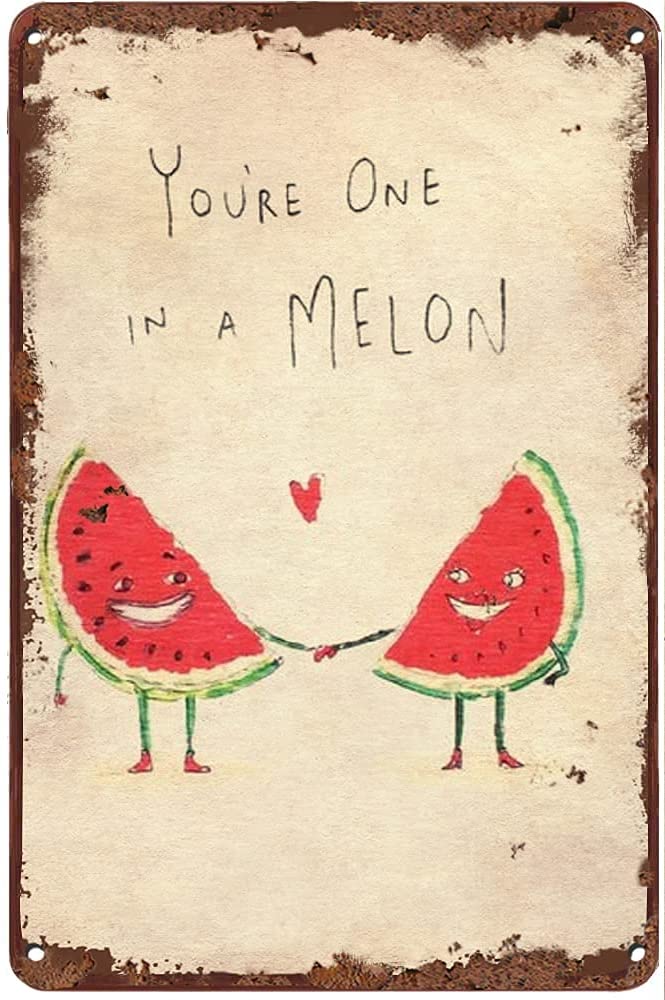 YOU'RE ONE
IN A MELON